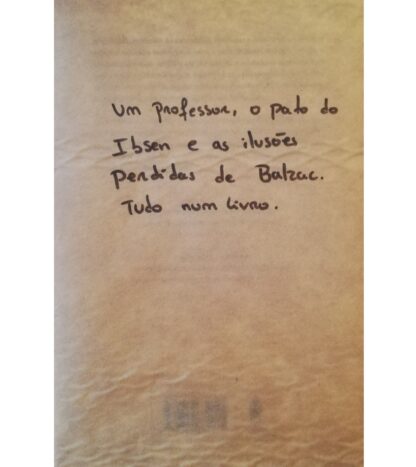 Um professor, o pato do
Ibsen e as ilusões
perdidas de Balzac.
Tudo num livro.